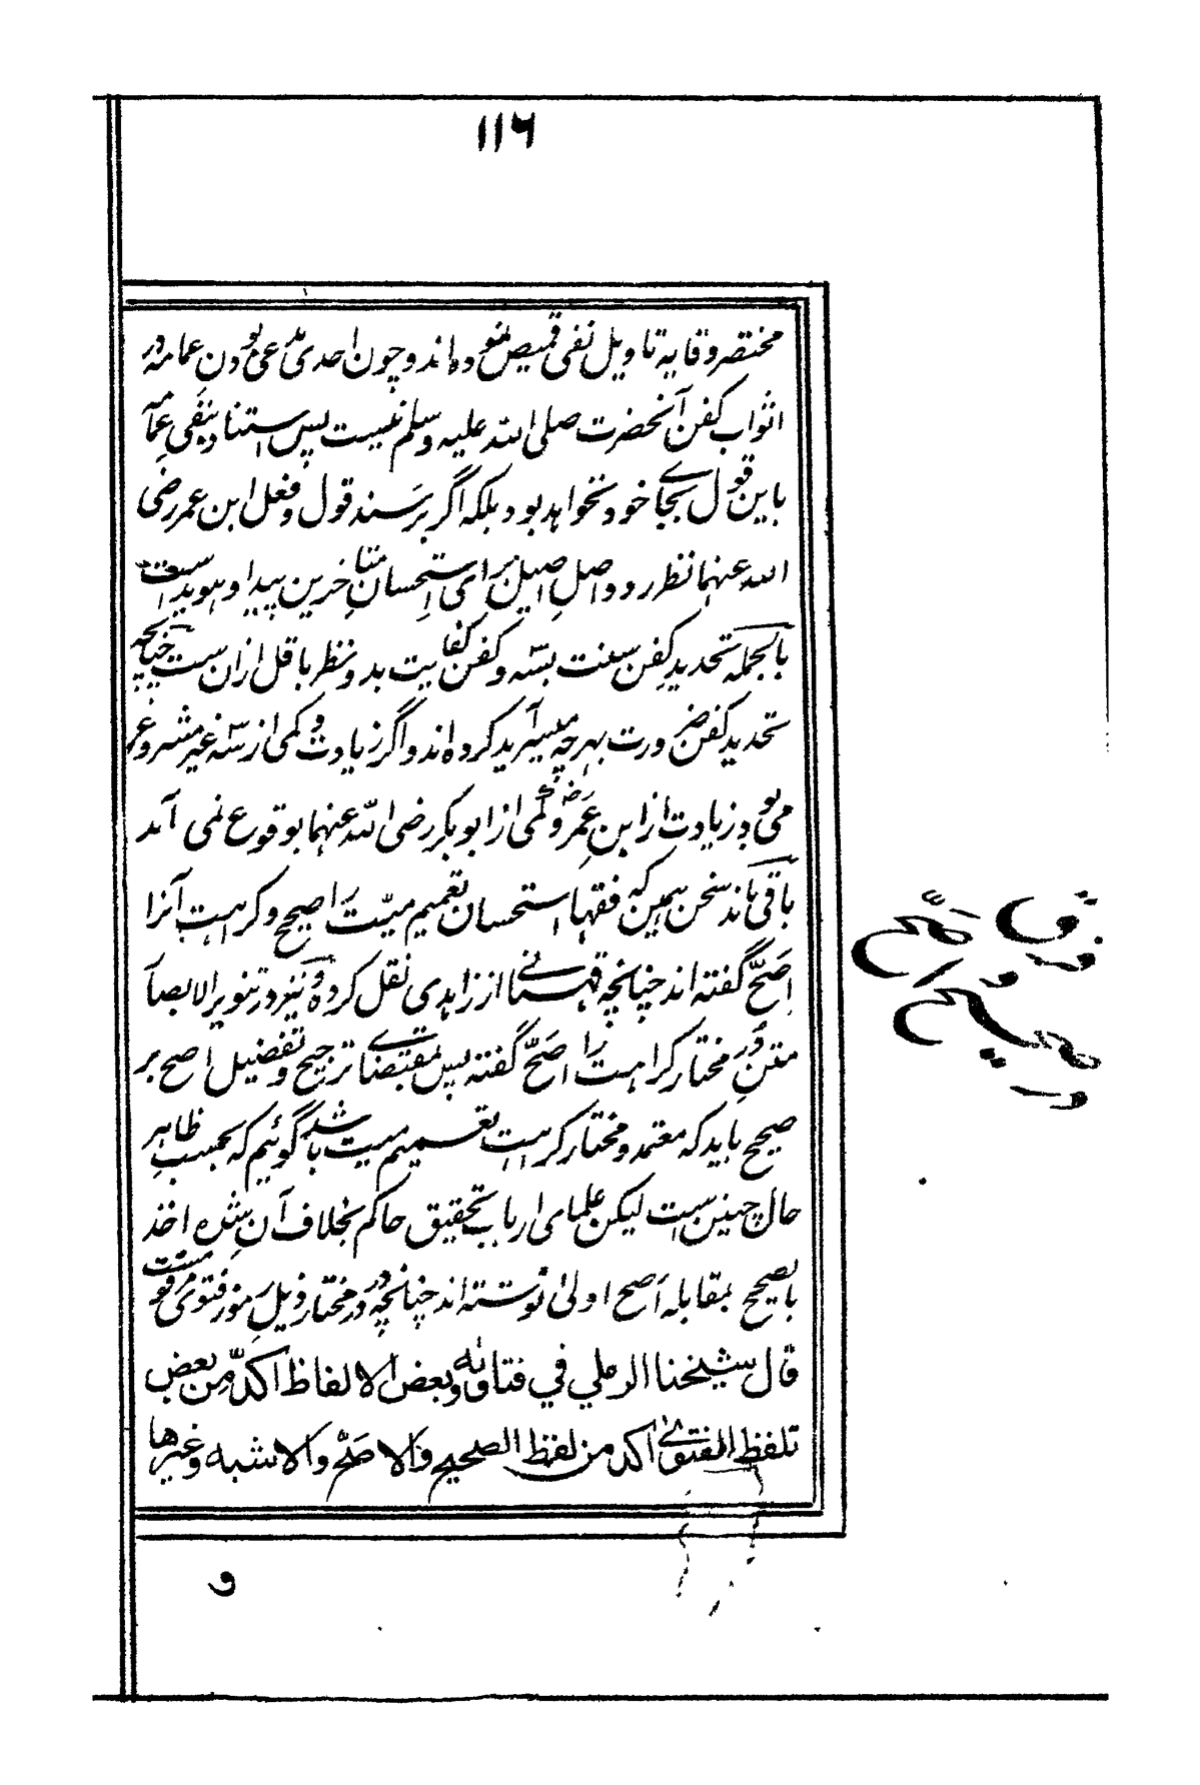 ١١٦
مختصر وقایه تاویل نفی قمیص نموده‌اند و چون احدی مدعی بودن عمامه در
اثواب کفن آنحضرت صلی الله علیه وسلم نیست پس استناد بنفی عمامه
باین قول بجای خود نخواهد بود بلکه اگر بر سند قول و فعل ابن عمر رضی
الله عنهما نظر رود اصل اصیل برای استحسان متاخرین پیدا و هویداست
بالجمله تحدید کفن سنت بسه و کفن کفایت بدو نظر باقل ازان ست چنانچه
تحدید کفن ضرورت بهرچه میسر آید کرده‌اند و اگر زیادت و کمی از سه غیر مشروع
می‌بود زیادت از ابن عمر و کمی از ابو بکر رضی الله عنهما بوقوع نمی آمد
باقی ماند سخن همین که فقها استحسان تعمیم میت را صحیح و کراهت آنرا
اصح گفته‌اند چنانچه قهستانی از زاهدی نقل کرده و نیز در تنویر الابصار
متن در مختار کراهت را اصح گفته پس بمقتضای ترجیح و تفضیل اصح بر
صحیح باید که معتمد و مختار کراهت تعمیم میت باشد گوئیم که بحسب ظاهر
حال چنین ست لیکن علمای ارباب تحقیق حاکم بخلاف آن شده اخذ
بصحیح بمقابله اصح اولی نوشته‌اند چنانچه در در مختار ذیل رموز فتوی مرقومست
قال شیخنا الرملي في فتاواه وبعض الالفاظ اکد من بعض
تلفظ الفتوی اکد من لفظ الصحیح والاصح والاشبه وغیرها
فرق
در اصح
و صحیح
و